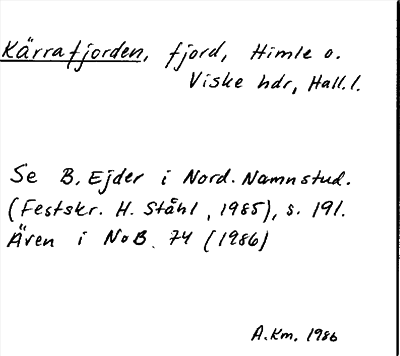 Kärrafjorden, fjord, Himle o.
Viske hdr, Hall.l.
Se B. Ejder i Nord. Namnstud.
(Festskr. H. Ståhl, 1985), s. 191.
Även i NoB. 74 (1986)
A.Km. 1986